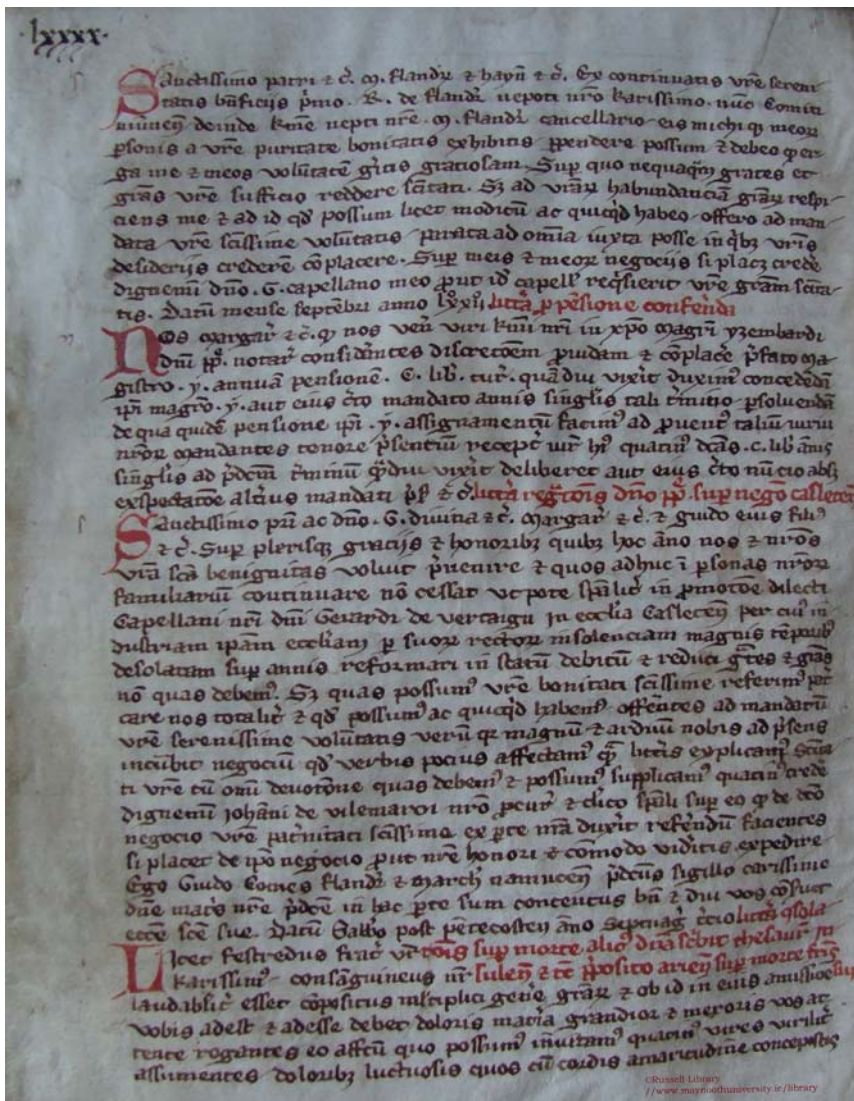 ·lxxxx·
Sanctissimo patri & c̄. M. flandr̄ & hayn̄ & c̄. Ex continuatis vr̄e sereni
tatis bn̄ficijs p̄mo. R. de flandr̄ nepoti nr̄o karissimo. nūc Comiti
deinde nepti nr̄e. M. flandr̄ cancellario. eis michi meor̄
p̄sonis a vr̄e puritate bonitatis exhibitis ꝑpendere possum & debeo
ga me & meos volūtatē gratiosam. Suꝑ quo nequaq̄m grates et
gr̄as vr̄e sufficio reddere sc̄itati. Sꝫ ad vr̄ar̄ habundanciā gr̄ar̄ respi
ciens me & ad id qd̄ possum licet modicū ac quicq̄d habeo. offero ad man
data vr̄e sc̄issime volūtatis. parata ad om̄ia iuxta posse in q̄bꝫ vr̄is
desiderijs crederē cō̄placere. Suꝑ meis & meor̄ negocijs si placꝫ credē
dignemī dn̄o. G. capellano meo ꝓut id̄ capell̄ req̄sierit vr̄e gr̄am sc̄ita
tis. Datū mense septēbri anno lr̄a ꝓ pēsione conferēda
Nos Margar̄ & c̄. q̄ nos ven̄ viri nr̄i in xp̄o magr̄i yzembardi
dn̄i pp̄. notar̄ considr̄antes discrecōem ꝓuidam & cō̄placē p̄fato ma
gistro. y. annuā pensionē. C. lib̄. tur̄. quādiu vixit̄ duxim᷒ concedēdā
ip̄i magr̄o. y. aut eius c̄to mandato annis singl̄is tali t̄mino ꝑsoluendā
de qua quidē pensione ip̄i. y. assignamentū facim᷒ ad ꝓuent᷒ taliū
nr̄or̄ mandantes tenore p̄sentiū recept̄ quatin᷒ dc̄as. c. lib̄ ānis
singl̄is ad p̄dc̄m t̄minū q̄̄diu vixit̄ deliberet aut eius c̄to nūcio absꝫ
exspectatōe alt̄ius mandati & c̄. lr̄a dn̄o pp̄. suꝑ negō casletēn̄
Sanctissimo pr̄i ac dn̄o. G. diuina & c̄. Margar̄ & c̄. & guido eius fili᷒
& c̄. Suꝑ plerisqꝫ gracijs & honoribꝫ quibꝫ hoc āno nos & nr̄os
vr̄a sc̄a benignitas voluit p̄uenire & quos adhuc ī ꝑsonas nr̄or̄
familiariū continuare nō cessat vt pote sp̄alit̄ in ꝓmotōe dilecti
Capellani nr̄i dn̄i Gerardi de vertaign̄ in eccl̄ia Casletēn̄ per cui᷒ in
dustriam ip̄am eccl̄iam ꝑ suor̄ rector̄ insolenciam magnis tēporib᷒
desolatam suꝑ annis reformari in statū debitū & reduci gr̄tes & gr̄as
nō quas debem᷒. Sꝫ quas possum᷒ vr̄e bonitati sc̄issime referim᷒
care nos totalit̄ & qd̄ possum᷒ ac quicq̄d habem᷒. offerētes ad mandatū
vr̄e serenissime volūtatis verū qr̄ magnū & arduū nobis ad p̄sens
incūbit negociū qd̄ verbis pocius affectam᷒ q̄̄ litt̄is explicari᷒ sc̄ita
ti vr̄e cū om̄i deuotōne quas debem᷒ & possum᷒ supplicam᷒ quatin᷒ credē
dignemī Johāni de vilemarvi nr̄o ꝓcur̄ & cl̄ico sp̄ali suꝑ eo q̄ de dc̄o
negocio vr̄e pat̄nitati sc̄issime ex ꝑte nr̄a duxit̄ refer̄ndū facientes
si placet de ip̄o negocio ꝓut nr̄e honori & cō̄modo viditis expedire
Ego Guido Comes flandr̄ & march̄ namucēn̄ p̄dc̄us sigillo carissime
dn̄e mat̄s nr̄e p̄dc̄e in hac ꝑte sum contentus bn̄ & diu vos cō̄seruet
eccē sc̄e sue. Datū Sabb̄o post pētecosten̄ āno septuaḡ lr̄a cō̄sola
tōis suꝑ morte alic᷒
Licet festredus frat̄ vr̄
karissim᷒. consanguineus nr̄ p̄posito arien̄ suꝑ morte fr̄is
laudabilit̄ esset cō̄positus multiplici gēne gr̄ar̄ & ob id in eius amissiōe
vobis adest & adesse debet doloris mat̄ia grandior & meroris vos at
tente rogantes eo affc̄u quo possum᷒ inuitam᷒ quatin᷒ vires virilit̄
assumentes doloribꝫ luctuosis quos cū cordis amaritudine concepistis
©Russell Library
//www.maynoothuniversity.ie/library